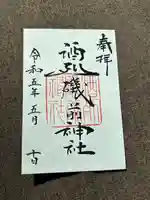 奉拝
酒列磯前神社
令和五年五月 日